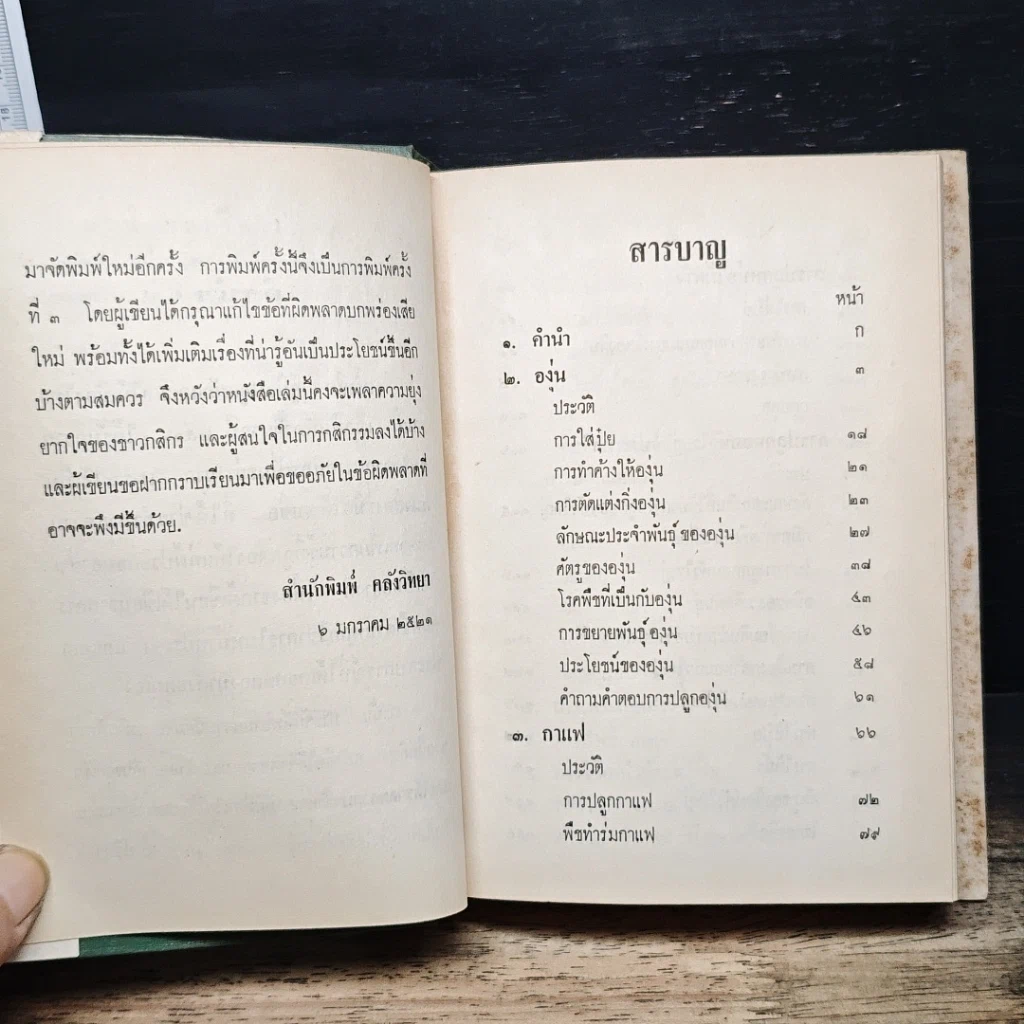 มาจัดพิมพ์ใหม่อีกครั้ง การพิมพ์ครั้งนี้จึงเป็นการพิมพ์ครั้ง
ที่ ๓ โดยผู้เขียนได้กรุณาแก้ไขข้อที่ผิดพลาดบกพร่องเสีย
ใหม่ พร้อมทั้งได้เพิ่มเติมเรื่องที่น่ารู้อันเป็นประโยชน์ขึ้นอีก
บ้างตามสมควร จึงหวังว่าหนังสือเล่มนี้คงจะเพลาความยุ่ง
ยากใจของชาวกสิกร และผู้สนใจในการกสิกรรมลงได้บ้าง
และผู้เขียนขอฝากกราบเรียนมาเพื่อขออภัยในข้อผิดพลาดที่
อาจจะพึงมีขึ้นด้วย.
สำนักพิมพ์ คลังวิทยา
๖ มกราคม ๒๕๒๑
สารบาญ
หน้า
๑. คำนำ ก
๒. องุ่น ๓
ประวัติ
การใส่ปุ๋ย ๑๘
การทำค้างให้องุ่น ๒๑
การตัดแต่งกิ่งองุ่น ๒๓
ลักษณะประจำพันธุ์ขององุ่น ๒๗
ศัตรูขององุ่น ๓๘
โรคพืชที่เป็นกับองุ่น ๔๓
การขยายพันธุ์องุ่น ๔๖
ประโยชน์ขององุ่น ๕๘
คำถามคำตอบการปลูกองุ่น ๖๑
๓. กาแฟ ๖๖
ประวัติ
การปลูกกาแฟ ๗๒
พืชทำร่มกาแฟ ๗๙